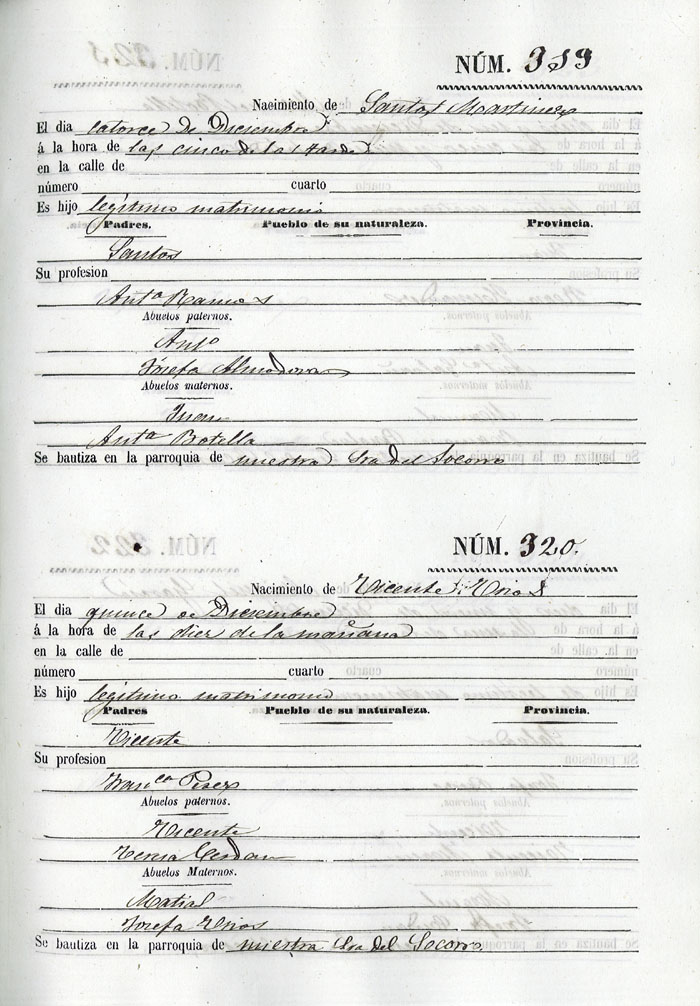 NÚM. 319
Nacimiento de Santos Martinez
El dia catorce de Diciembre
á la hora de las cinco de la tarde
en la calle de
número cuarto
Es hijo legítimo matrimonio
Padres. Pueblo de su naturaleza. Provincia.
Santos
Su profesion
Antª Ramos
Abuelos paternos.
Antº
Josefa Almodovar
Abuelos maternos.
Juan
Antª Botella
Se bautiza en la parroquia de nuestra Sra del Socorro
NÚM. 320.
Nacimiento de Vicente Rios
El dia quince de Diciembre
á la hora de las diez de la mañana
en la calle de
número cuarto
Es hijo legítimo matrimonio
Padres Pueblo de su naturaleza. Provincia.
Vicente
Su profesion
Franca Perez
Abuelos paternos.
Vicente
Teresa Cerdan
Abuelos Maternos.
Matial
Josefa Rios
Se bautiza en la parroquia de nuestra Sra del Socorro.